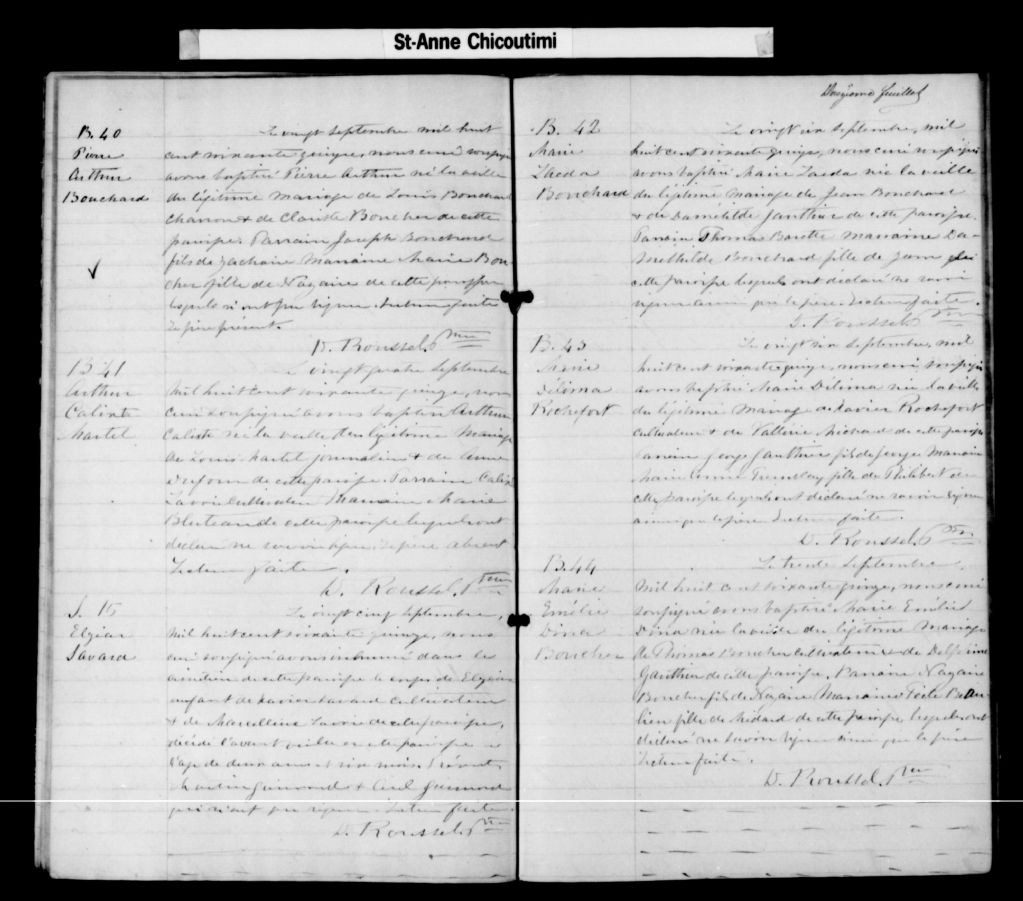 St-Anne Chicoutimi
B. 40
Pierre
Arthur
Bouchard
Le vingt septembre mil huit
cent soixante quinze, nous curé soussigné
avons baptisé Pierre Arthur né la veille
du légitime mariage de Louis Bouchard
& de Boucher de cette
paroisse. Parrain Joseph Bouchard
fils de Zacharie Marraine Marie Bou
cher fille de Nazaire de cette paroisse
lesquels n'ont pu signer. Lecture faite
Le père présent.
D. Roussel, Ptre
B 41
Arthur
Calixte
Martel
Le vingt quatre Septembre
mil huit cent soixante quinze, nous
curé soussigné avons baptisé Arthur
Calixte né la veille du légitime Mariage
de Louis Martel journalier & de Anne
de cette paroisse. Parrain Calixte
Lavoie Cultivateur Marraine Marie
de cette paroisse lesquels ont
déclaré ne savoir signer. Le père absent
Lecture faite.
D. Roussel, Ptre
S. 16
Elzéar
Savard
Le vingt cinq Septembre,
mil huit cent soixante quinze, nous
curé soussigné avons inhumé dans le
cimetière de cette paroisse le corps de Elzéar
enfant de Xavier Savard Cultivateur
& de Marcelline Lavoie de cette paroisse,
décédé l'avant veille en cette paroisse à
l'age de deux ans et six mois. Présents
& Guimond
qui n'ont pu signer. Lecture faite.
D. Roussel, Ptre
Onzième feuillet
B. 42
Marie
Bouchard
Le vingt six Septembre, mil
huit cent soixante quinze, nous curé soussigné
avons baptisé Marie née la veille
du légitime Mariage de Jean Bouchard
& de Damétilde Gauthier de cette paroisse.
Parrain Thomas Marraine Da-
methilde Bouchard fille de Jean de
cette paroisse lesquels ont déclaré ne savoir
signer ainsi que le père. Lecture faite.
D. Roussel, Ptre
B. 43
Marie
Délima
Rochefort
Le vingt six Septembre, mil
huit cent soixante quinze, nous curé, soussigné
avons baptisé Marie Délima née la veille
du légitime Mariage de Xavier Rochefort
cultivateur & de Vallérie Michard de cette paroisse
Parrain George Gauthier fils de George Marraine
Marie Tremblay fille de Philibert de
cette paroisse lesquels ont déclaré ne savoir signer
ainsi que le père. Lecture faite.
D. Roussel, Ptre
B. 44
Marie
Emélie
Dina
Boucher
Le trente Septembre
mil huit cent soixante quinze, nous curé
soussigné avons baptisé Marie Emélie
Dina née la veille du légitime Mariage
de Thomas Boucher Cultivateur & de Delphine
Gauthier de cette paroisse, Parrain Nazaire
Boucher fils de Nazaire Marraine Beau
lieu fille de Médard de cette paroisse lesquels ont
déclaré ne savoir signer ainsi que le père
Lecture faite.
D. Roussel, Ptre